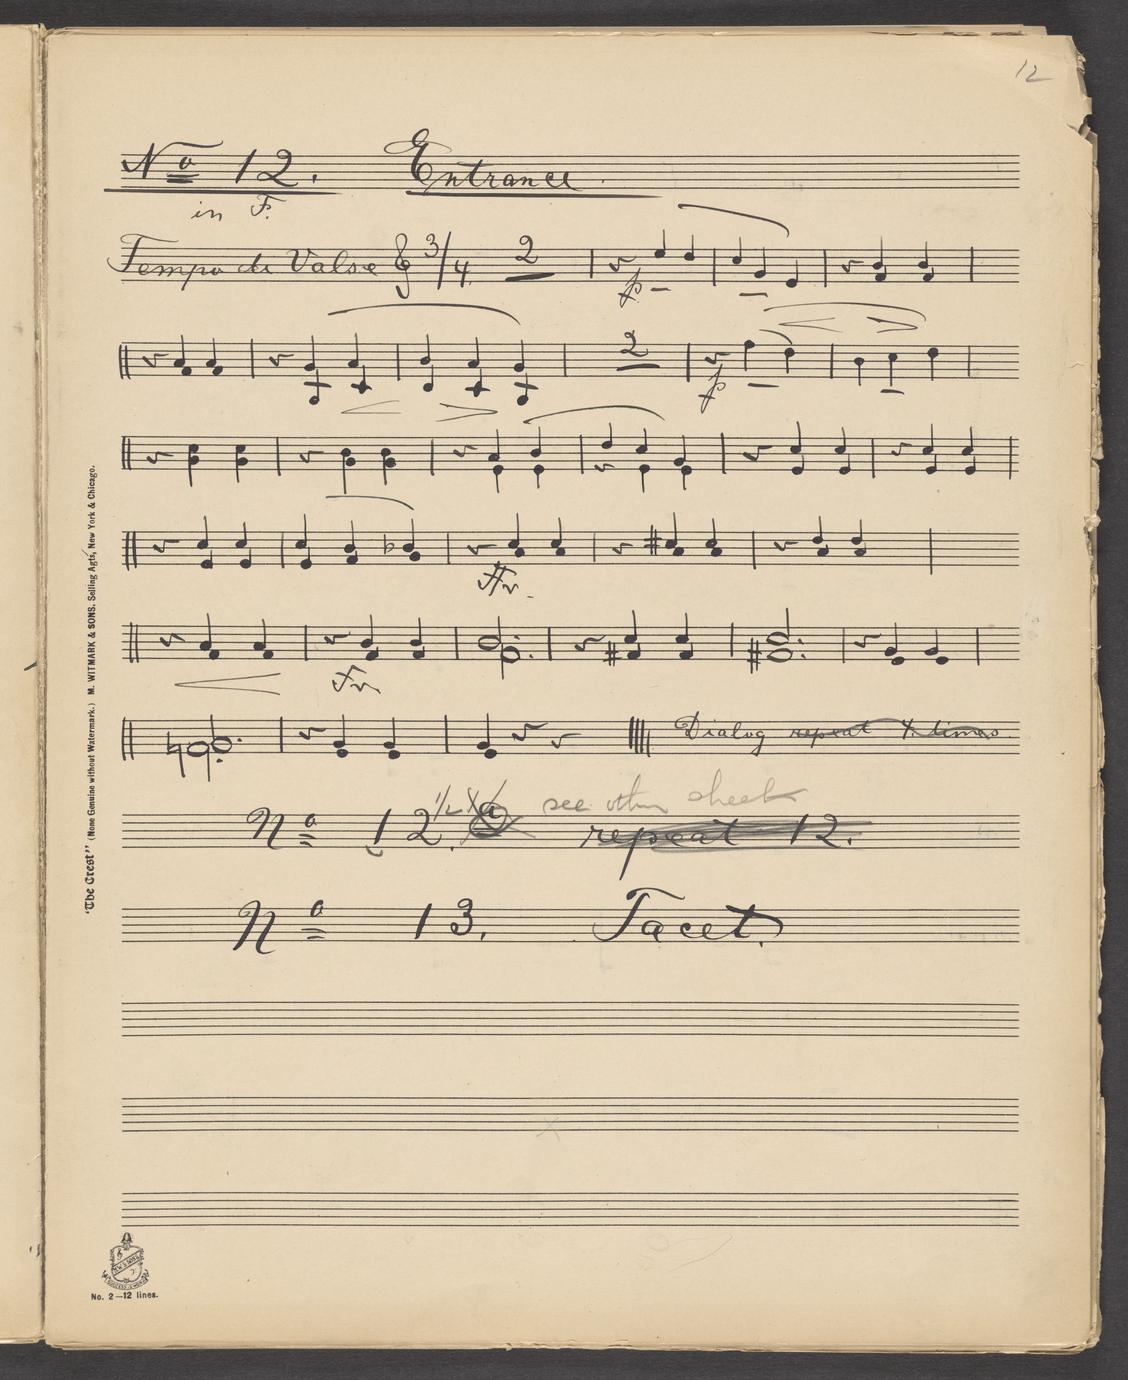 12
No 12. Entrance.
in F.
Tempo di Valse 3/4 2
p
2
p
Dialog repeat 4 times.
No 12 1/2 see other sheet repeat 12.
No 13. Tacet.
"The Crest" (None Genuine without Watermark.) M. WITMARK & SONS. Selling Agts, New York & Chicago.
No. 2—12 lines.